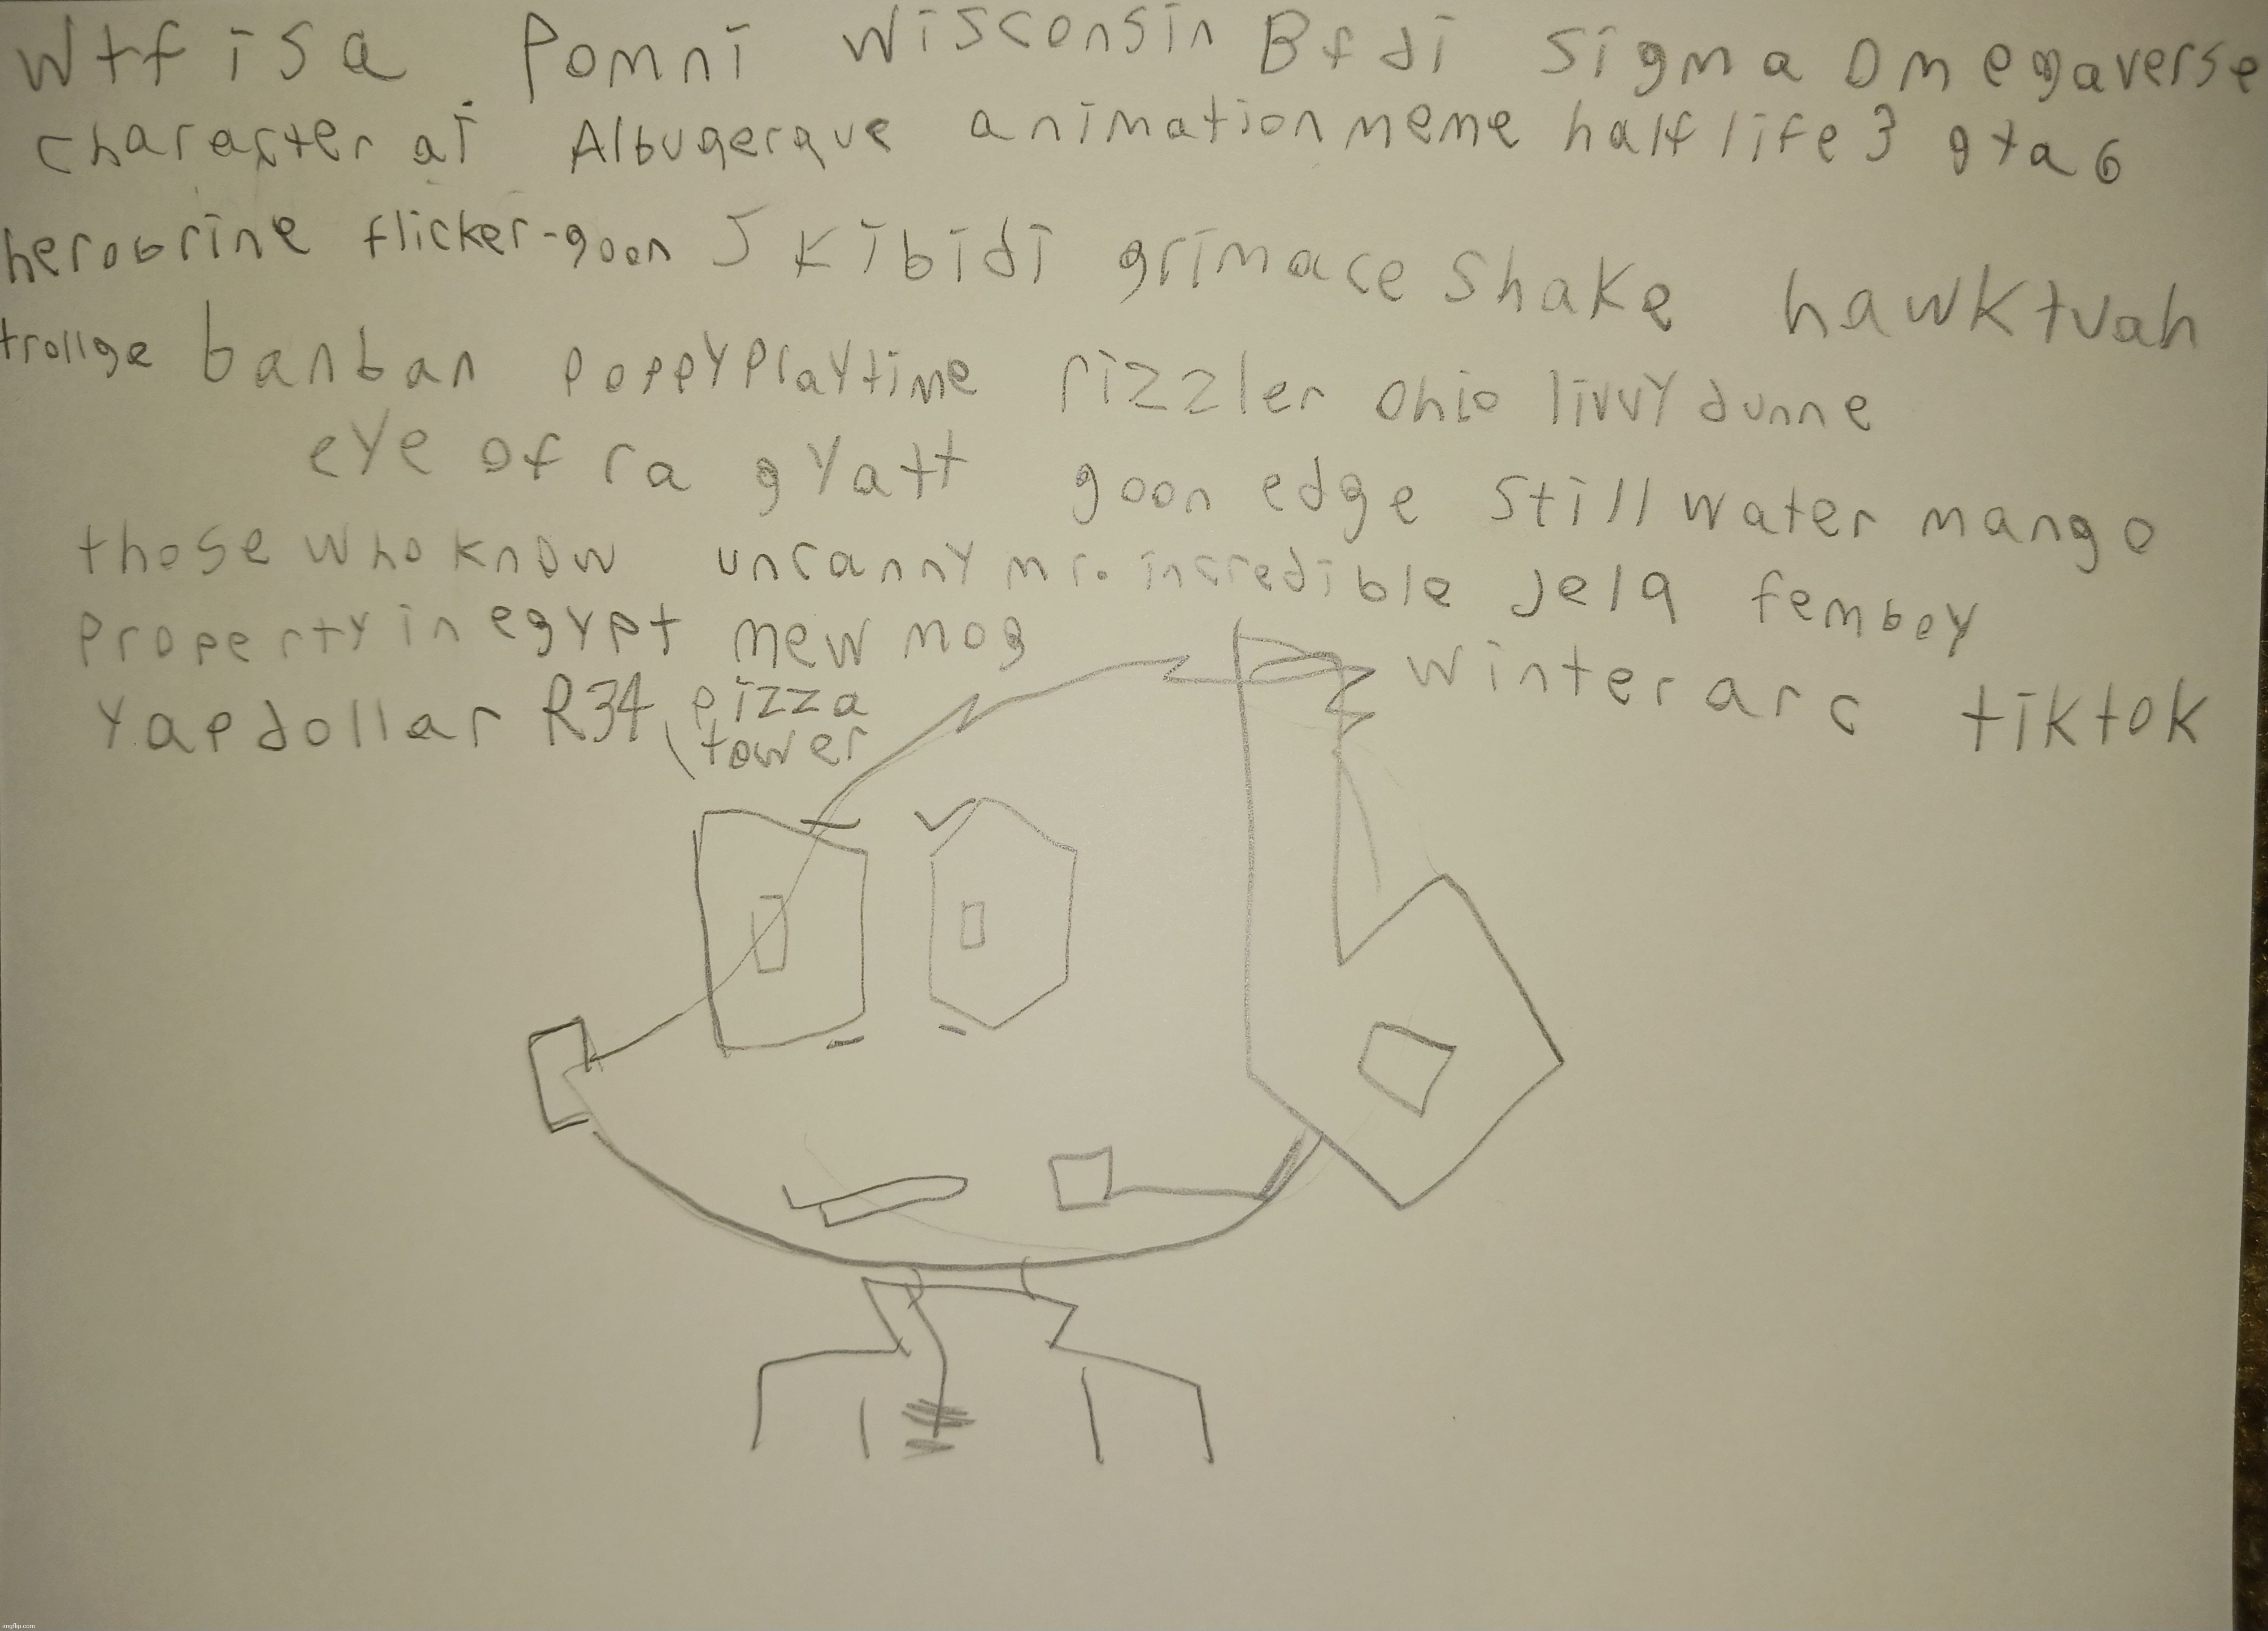 Wtf is a Pomni Wisconsin Bfdi Sigma Omegaverse
character ai Albuqerque animationmeme halflife3 gta6
herobrine flicker-goon Skibidi grimace Shake hawktuah
trollge banban poppyplaytime rizzler Ohio livvydunne
eye of ra gyatt goon edge Still water mango
those who know uncanny mr. incredible jelq femboy
property in egypt mew mog winter arc tiktok
yap dollar R34 pizza
tower
imgflip.com